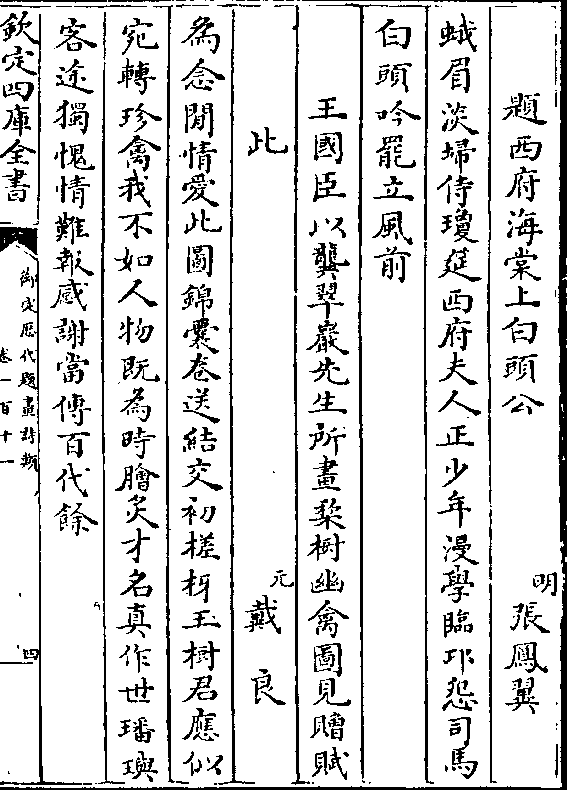 題西府海棠上白頭公 明 張鳳翼
蛾眉淡埽侍瓊筵西府夫人正少年漫學臨邛怨司馬
白頭吟罷立風前
王國臣以龔翠巖先生所畫棃樹幽禽圖見贈賦
此 元 戴良
為念閒情愛此圖錦囊卷送結交初槎枒玉樹君應似
宛轉珍禽我不如人物既為時膾炙才名真作世璠璵
客途獨愧情難報感謝當傳百代餘
欽定四庫全書
御定歷代題畫詩類
卷一百十一
四